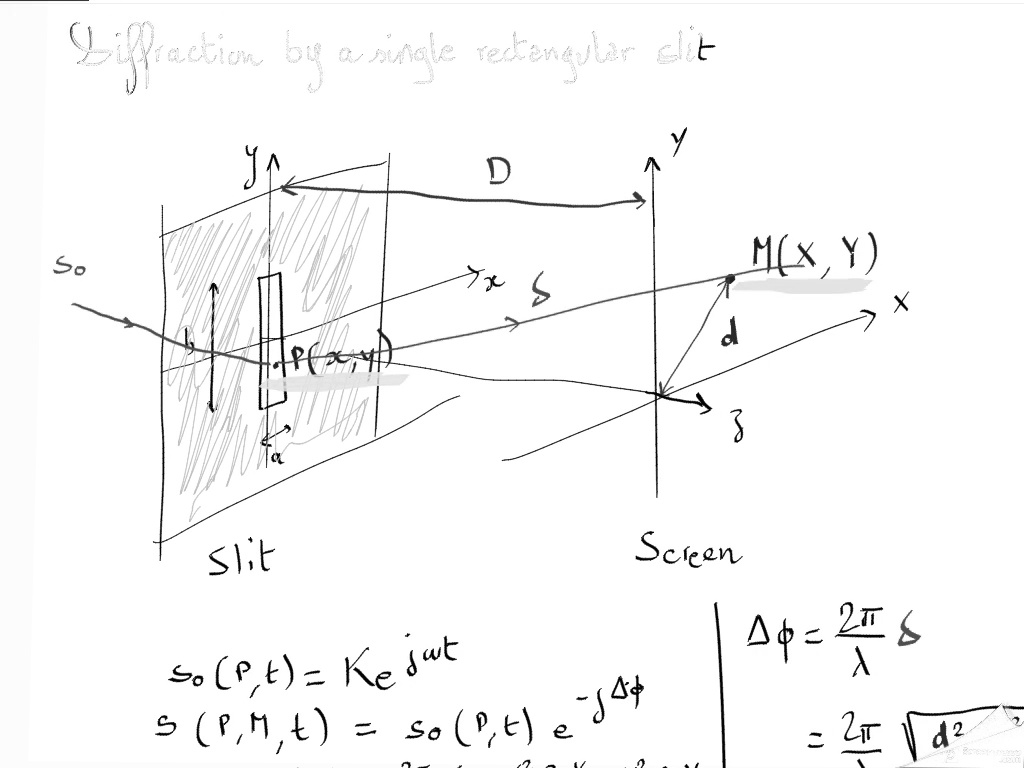 Diffraction by a single rectangular slit
y
D
Y
M(X, Y)
s₀
x
δ
X
b
P(x, y)
d
z
a
Slit
Screen
Δϕ = 2π/λ δ
s₀(P,t) = K e^{jωt}
s(P,M,t) = s₀(P,t) e^{-jΔϕ}
= 2π/λ √d²